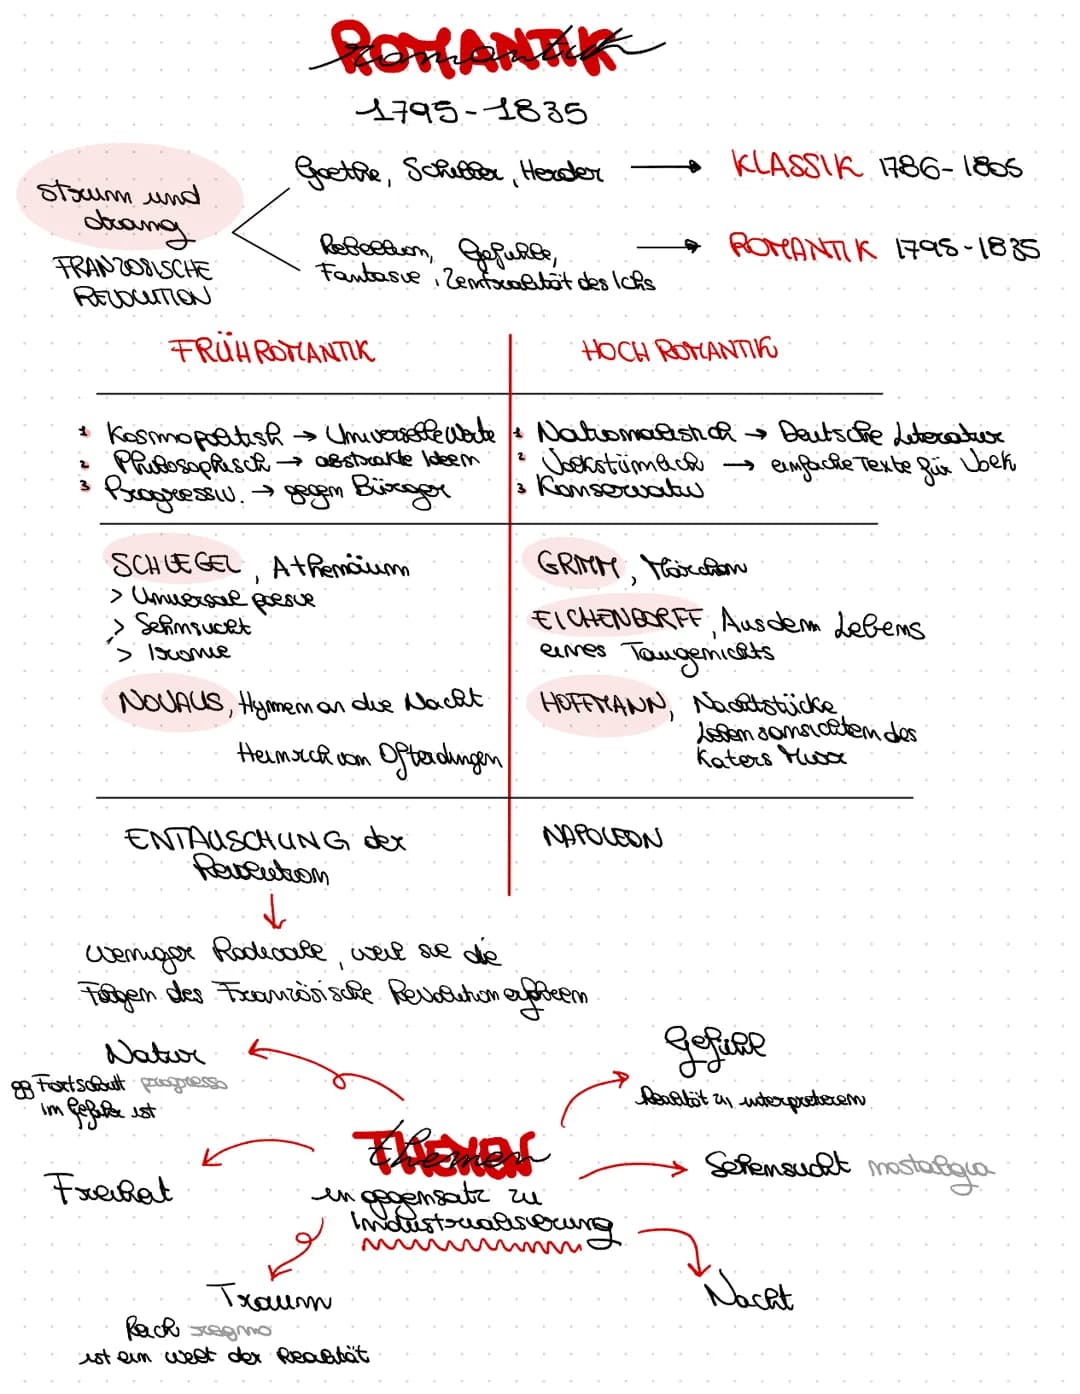 ROMANTIK
romantik
1795-1835
Goethe, Schiller, Herder → KLASSIK 1786-1805
Strum und
drang
FRANZÖSISCHE
REVOLUTION
Rebellion, Gefühle,
Fantasie, Zentralität des Ichs
→ ROMANTIK 1795-1835
FRÜHROMANTIK
HOCH ROMANTIK
1 Kosmopolitish → Universelle Werte
2 Philosophisch → abstrakte Ideen
3 Progressiv. → gegen Bürger
1 Nationalistich → Deutsche Literatur
2 Volkstümlich → einfache Texte für Volk
3 Konservativ
SCHLEGEL, Athenäum
> Universal poesie
> Sehnsucht
> Ironie
NOVALIS, Hymnen an die Nacht
Heinrich von Ofterdingen
GRIMM, Märchen
EICHENDORFF, Aus dem Lebens
eines Taugenichts
HOFFMANN, Nachtstücke
Lebensansichten des
Katers Murr
ENTAUSCHUNG der
Revolution
NAPOLEON
Weniger Radicale, weil sie die
Folgen des Französische Revolution
Natur
gg Fortschritt progresso
im Gefahr ist
Gefühl
Realität zu interpretieren
THEMEN
themen
in gegensatz zu
Industrialisierung
Sehensucht nostalgia
Freiheit
Traum
Reich regno
ist ein welt der Realität
Nacht